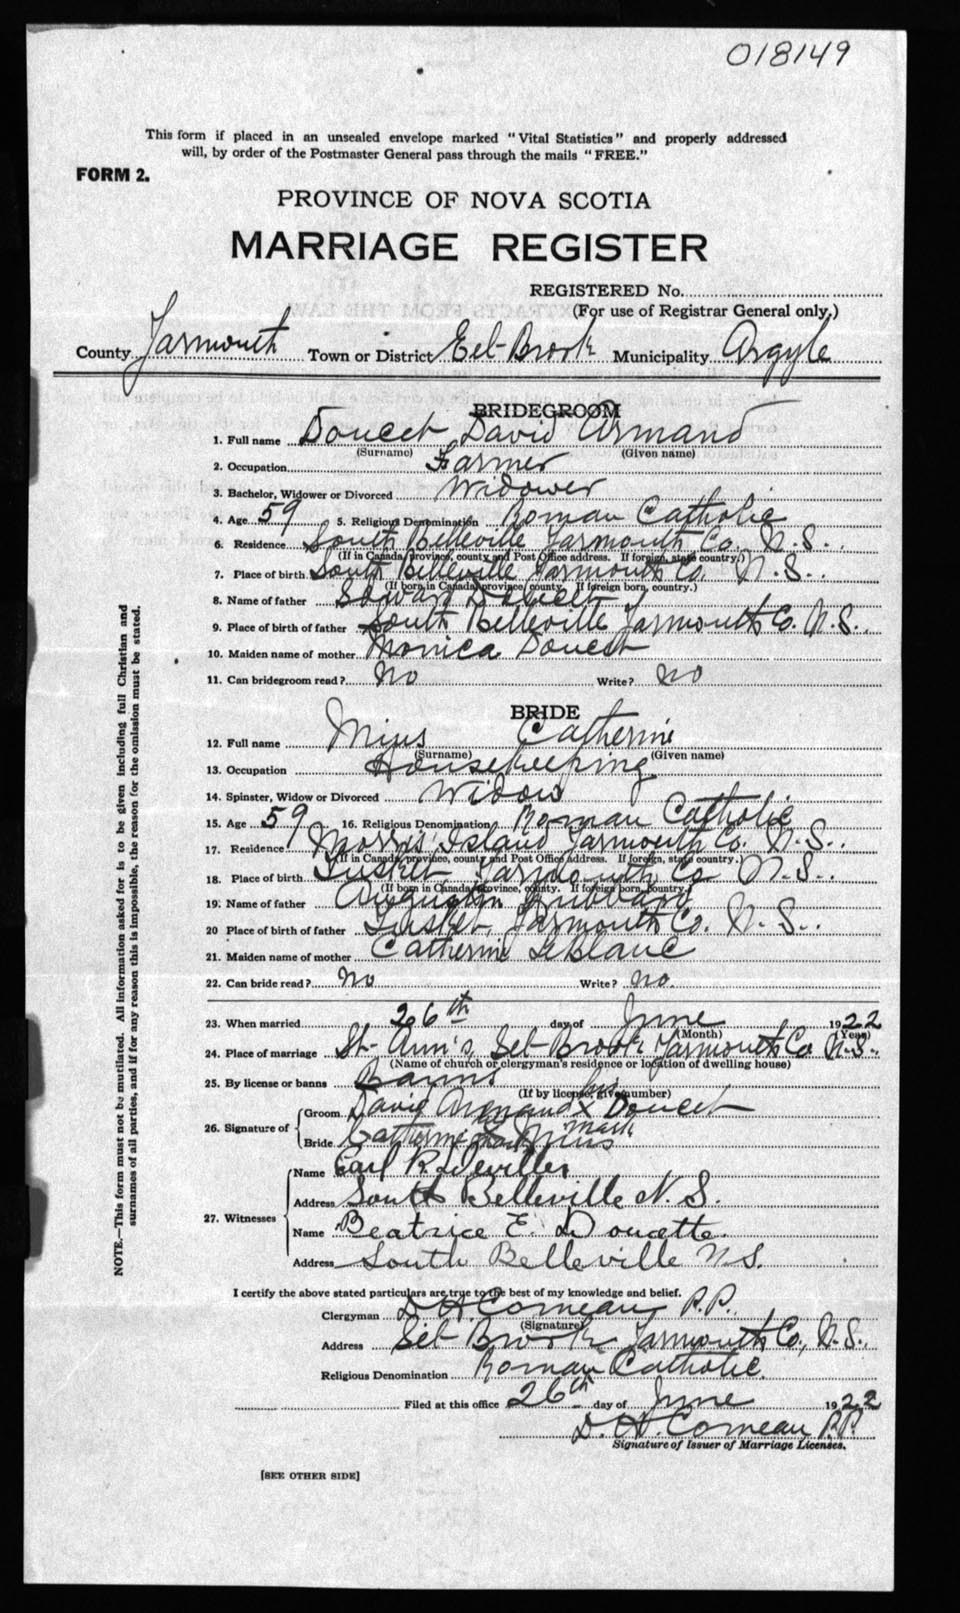 018149
This form if placed in an unsealed envelope marked "Vital Statistics" and properly addressed
will, by order of the Postmaster General pass through the mails "FREE."
FORM 2.
PROVINCE OF NOVA SCOTIA
MARRIAGE REGISTER
REGISTERED No.
(For use of Registrar General only.)
County Yarmouth Town or District Eel-Brook Municipality Argyle
BRIDEGROOM
1. Full name Doucet David Armand
(Surname) (Given name)
2. Occupation Farmer
3. Bachelor, Widower or Divorced Widower
4. Age 59 5. Religious Denomination Roman Catholic
6. Residence South Belleville Yarmouth Co. N.S.
(If in Canada, province, county and Post Office address. If foreign, state country.)
7. Place of birth South Belleville Yarmouth Co. N.S.
(If born in Canada, province, county. If foreign born, country.)
8. Name of father Doucet
9. Place of birth of father South Belleville Yarmouth Co. N.S.
10. Maiden name of mother Monica Doucet
11. Can bridegroom read? No Write? No
BRIDE
12. Full name Mius Catherine
(Surname) (Given name)
13. Occupation Housekeeping
14. Spinster, Widow or Divorced Widow
15. Age 59 16. Religious Denomination Roman Catholic
17. Residence Morris Island Yarmouth Co. N.S.
(If in Canada, province, county and Post Office address. If foreign, state country.)
18. Place of birth Tusket Yarmouth Co N.S.
(If born in Canada, province, county. If foreign born, country.)
19. Name of father Augustin Hubbard
20 Place of birth of father Tusket, Yarmouth Co. N.S.
21. Maiden name of mother Catherine LeBlanc
22. Can bride read? No Write? no.
23. When married 26th day of June 1922
(Month) (Year)
24. Place of marriage St-Ann's, Eel-Brook Yarmouth Co N.S.
(Name of church or clergyman's residence or location of dwelling house)
25. By license or banns Banns
(If by license, give number)
his
26. Signature of Groom David Armand X Doucet
mark
Bride Catherine X Mius
27. Witnesses Name Earl R. Deviller
Address South Belleville N.S.
Name Beatrice E. Doucette.
Address South Belleville N.S.
I certify the above stated particulars are true to the best of my knowledge and belief.
Clergyman D. H. Comeau, P.P.
(Signature)
Address Eel-Brook Yarmouth Co., N.S.
Religious Denomination Roman Catholic.
Filed at this office 26th day of June 1922
D. H. Comeau, P.P.
Signature of Issuer of Marriage Licenses.
[SEE OTHER SIDE]
NOTE.—This form must not be mutilated. All information asked for is to be given including full Christian and
surnames of all parties, and if for any reason this is impossible, the reason for the omission must be stated.